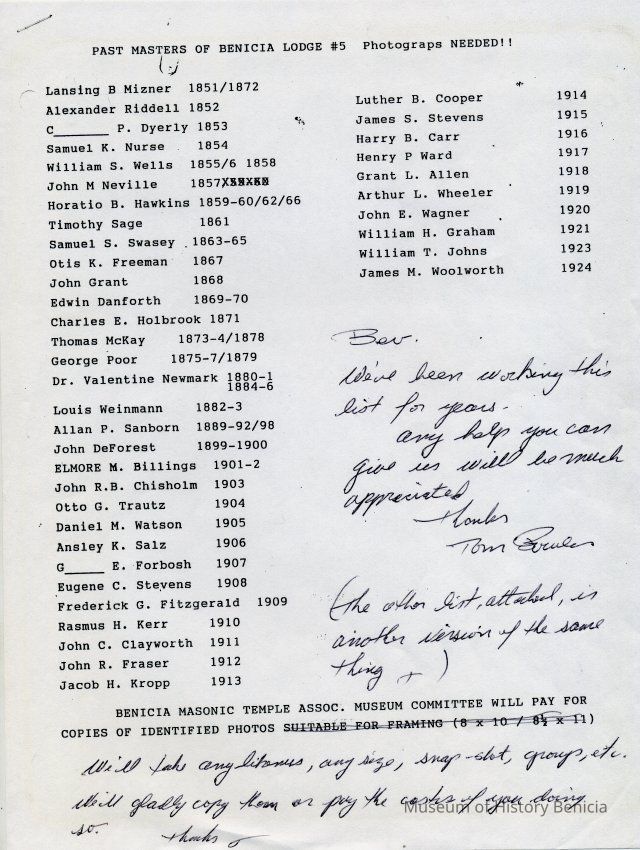 PAST MASTERS OF BENICIA LODGE #5 Photograps NEEDED!!
Lansing B Mizner 1851/1872
Alexander Riddell 1852
C_______ P. Dyerly 1853
Samuel K. Nurse 1854
William S. Wells 1855/6 1858
John M Neville 1857
Horatio B. Hawkins 1859-60/62/66
Timothy Sage 1861
Samuel S. Swasey 1863-65
Otis K. Freeman 1867
John Grant 1868
Edwin Danforth 1869-70
Charles E. Holbrook 1871
Thomas McKay 1873-4/1878
George Poor 1875-7/1879
Dr. Valentine Newmark 1880-1
1884-6
Louis Weinmann 1882-3
Allan P. Sanborn 1889-92/98
John DeForest 1899-1900
ELMORE M. Billings 1901-2
John R.B. Chisholm 1903
Otto G. Trautz 1904
Daniel M. Watson 1905
Ansley K. Salz 1906
G_____ E. Forbosh 1907
Eugene C. Stevens 1908
Frederick G. Fitzgerald 1909
Rasmus H. Kerr 1910
John C. Clayworth 1911
John R. Fraser 1912
Jacob H. Kropp 1913
Luther B. Cooper 1914
James S. Stevens 1915
Harry B. Carr 1916
Henry P Ward 1917
Grant L. Allen 1918
Arthur L. Wheeler 1919
John E. Wagner 1920
William H. Graham 1921
William T. Johns 1923
James M. Woolworth 1924
Bev.
We've been working this
list for years.
any help you can
give us will be much
appreciated
thanks
Tom
(the other list, attached, is
another version of the same
thing)
BENICIA MASONIC TEMPLE ASSOC. MUSEUM COMMITTEE WILL PAY FOR
COPIES OF IDENTIFIED PHOTOS SUITABLE FOR FRAMING (8 x 10 / 8½ x 11)
We'll take any, any size, snap-shot, groups, etc.
We'll gladly copy them or pay the costs of you doing
so. thanks
Museum of History Benicia